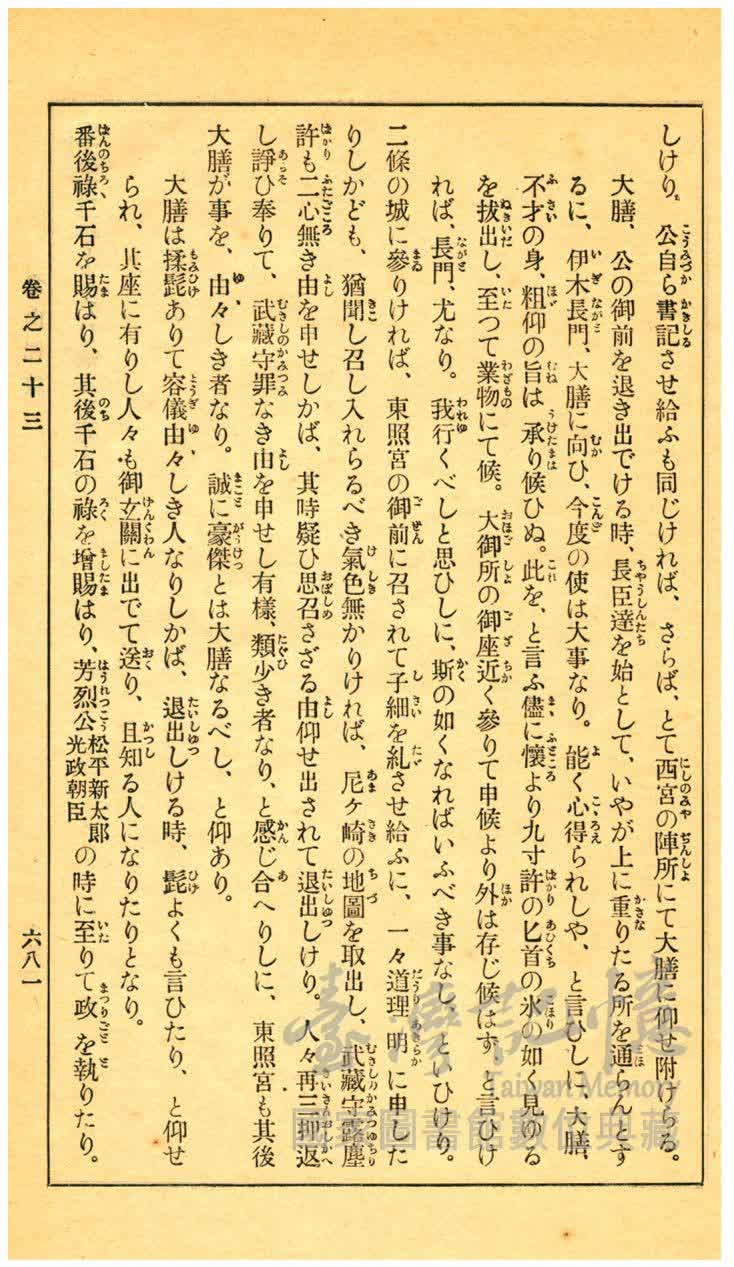 しけり。公自ら書記させ給ふも同じければ、さらば、とて西宮の陣所にて大膳に仰せ附けらる。
大膳、公の御前を退き出でける時、長臣達を始として、いやが上に重りたる所を通らんとす
るに、伊木長門、大膳に向ひ、今度の使は大事なり。能く心得られしや、と言ひしに、大膳、
不才の身、粗仰の旨は承り候ひぬ。此を、と言ふ儘に懷より九寸許の匕首の氷の如く見ゆる
を拔出し、至つて業物にて候。大御所の御座近く參りて申候より外は存じ候はず、と言ひけ
れば、長門、尤なり。我行くべしと思ひしに、斯の如くなればいふべき事なし、といひけり。
二條の城に參りければ、東照宮の御前に召されて子細を糺させ給ふに、一々道理明に申した
りしかども、猶聞し召し入れらるべき氣色無かりければ、尼ヶ崎の地圖を取出し、武藏守露塵
許も二心無き由を申せしかば、其時疑ひ思召さざる由仰せ出されて退出しけり。人々再三押返
し諍ひ奉りて、武藏守罪なき由を申せし有樣、類少き者なり、と感じ合へりしに、東照宮も其後
大膳が事を、由々しき者なり。誠に豪傑とは大膳なるべし、と仰あり。
大膳は揉髭ありて容儀由々しき人なりしかば、退出しける時、髭よくも言ひたり、と仰せ
られ、其座に有りし人々も御玄關に出でて送り、且知る人になりたりとなり。
番後祿千石を賜はり、其後千石の祿を增賜はり、芳烈公松平新太郎光政朝臣の時に至りて政を執りたり。
卷之二十三
六八一
臺灣記憶
Taiwan Memory
國家圖書館數位典藏